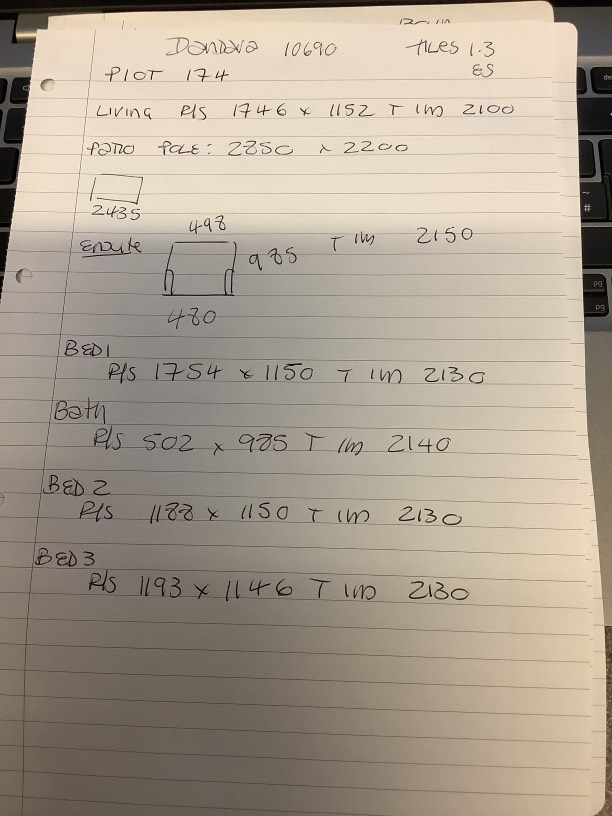 Dandara 10690 TILES 1.3
ES
PLOT 174
LIVING R/S 1746 x 1152 T IM 2100
PATIO POLE: 2850 x 2200
2435
498
Ensuite 985 T IM 2150
480
BED1
R/S 1754 x 1150 T IM 2130
Bath
R/S 502 x 985 T IM 2140
BED 2
R/S 1188 x 1150 T IM 2130
BED 3
R/S 1193 x 1146 T IM 2130